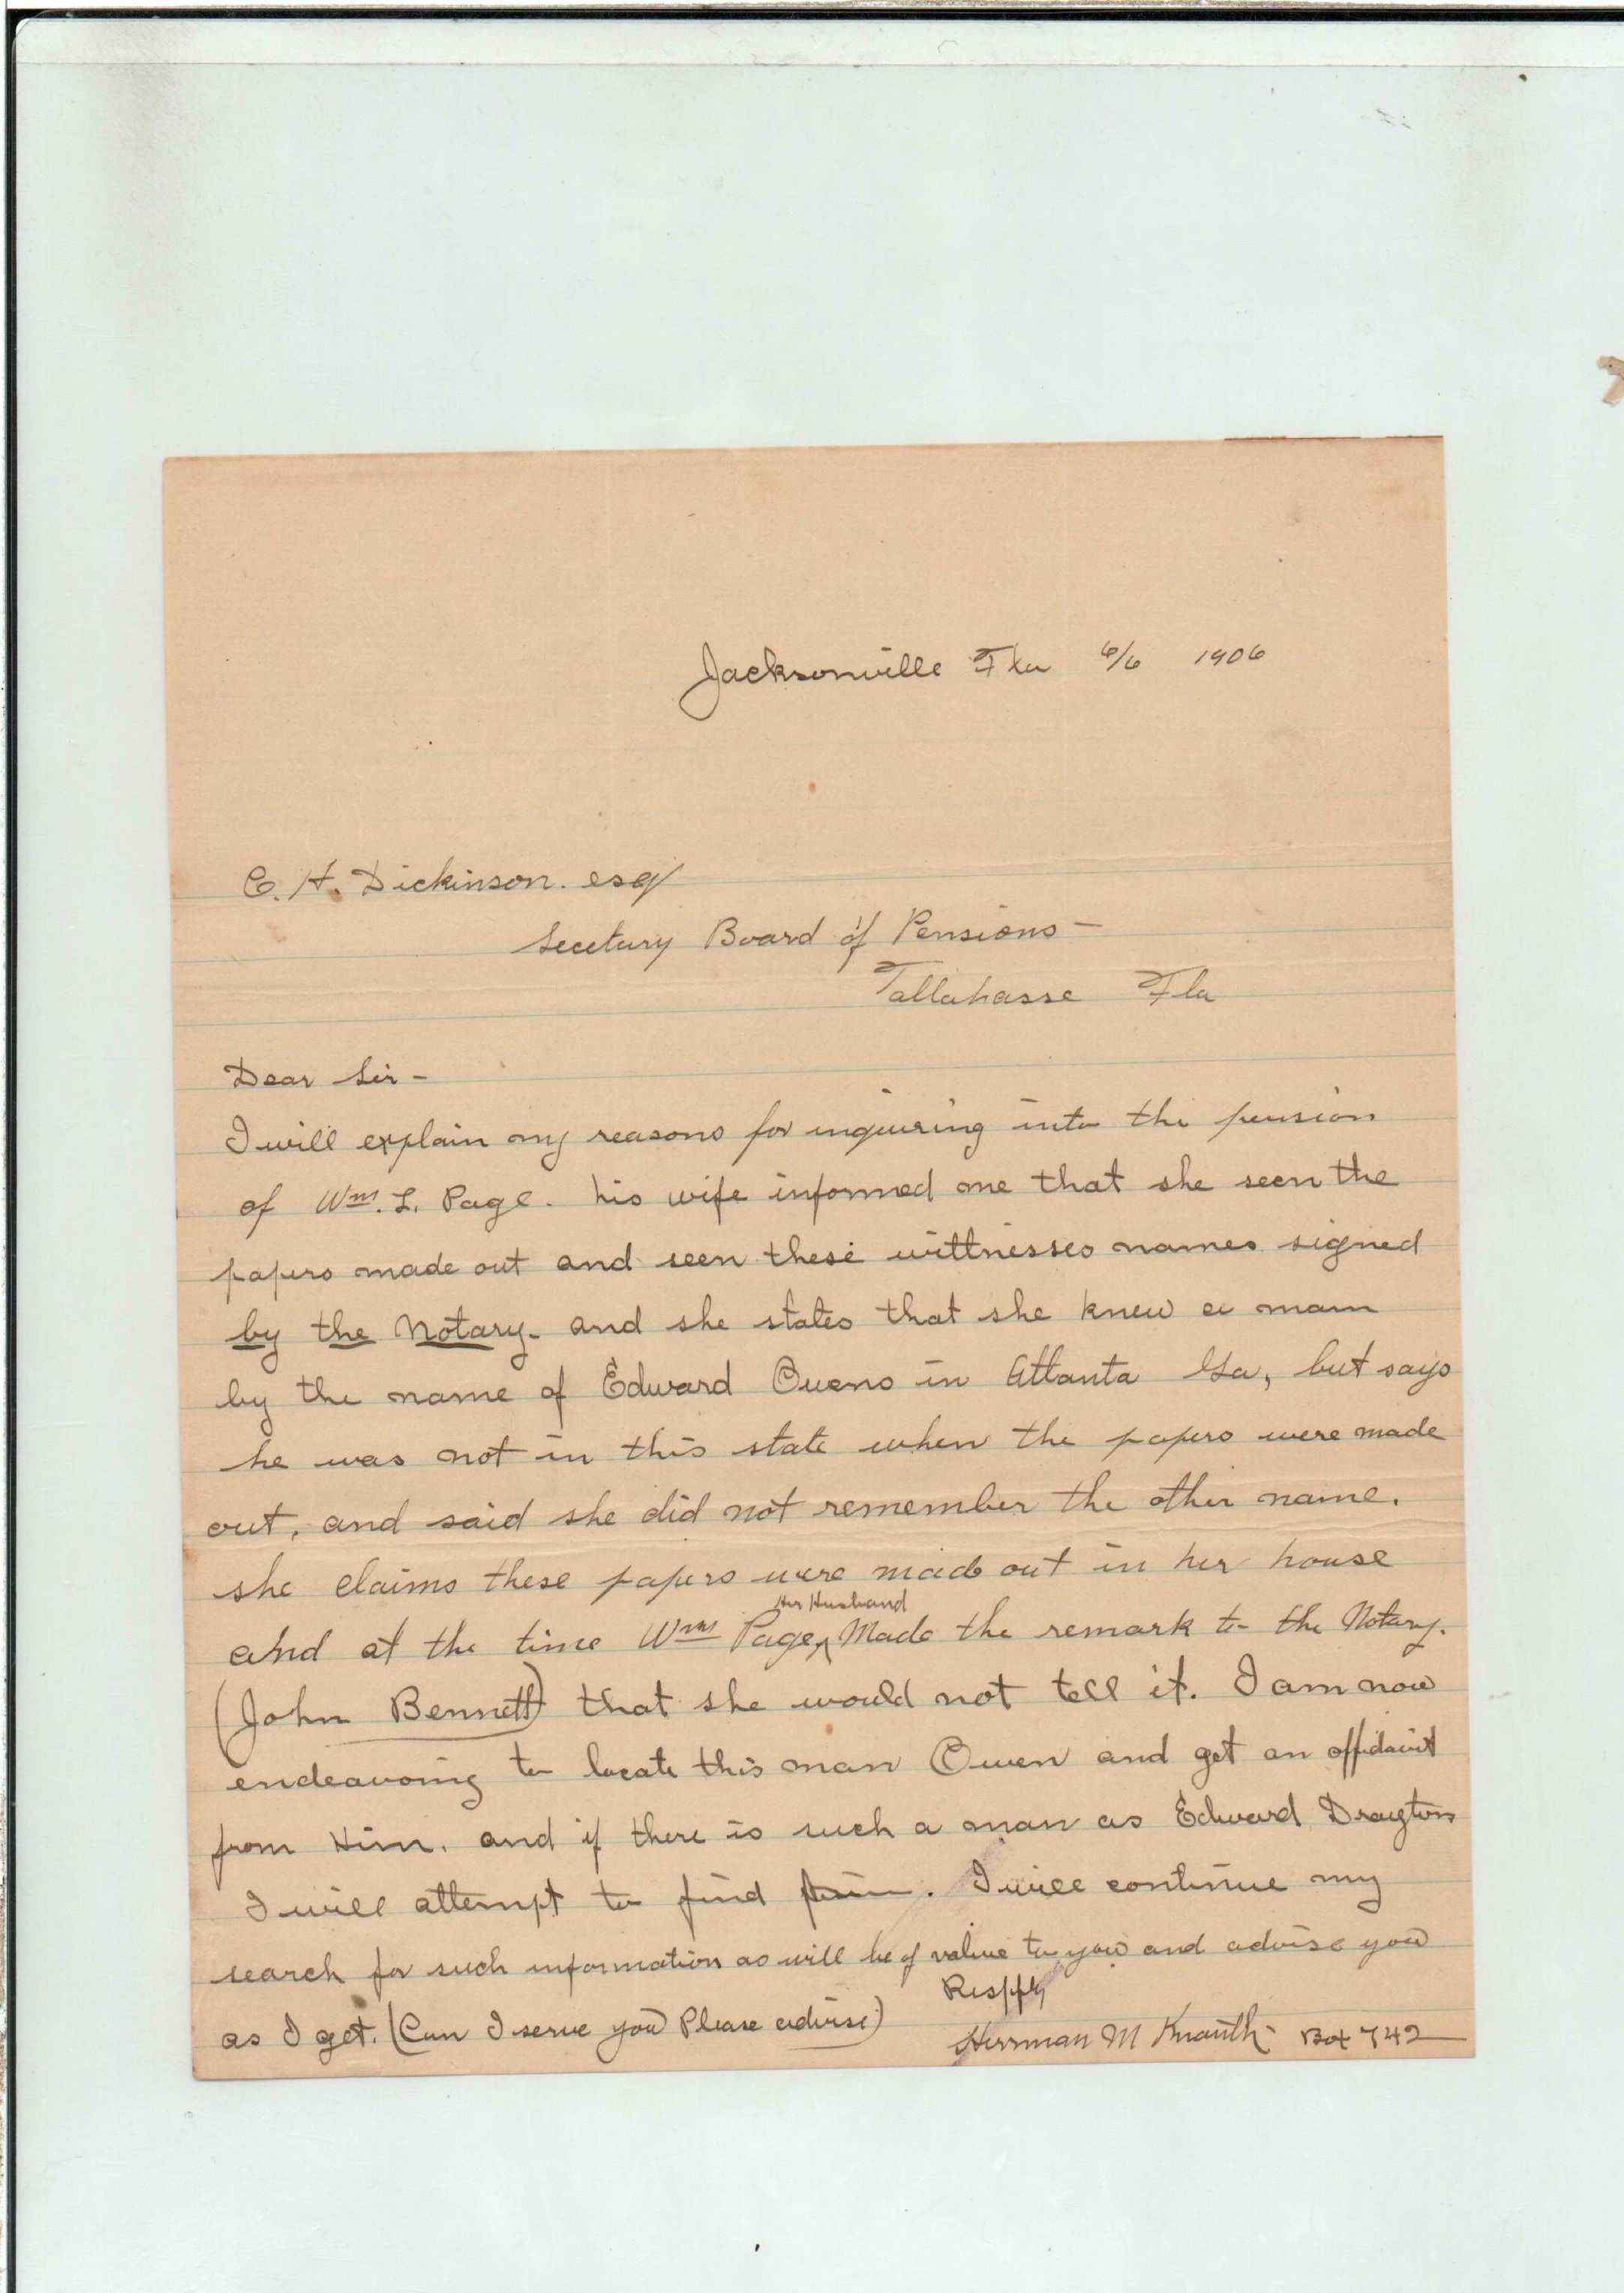 Jacksonville Fla 6/6 1906
C. H. Dickinson. esq
Secetary Board of Pensions -
Tallahasse Fla
Dear Sir -
I will explain my reasons for inquiring into the pension
of Wm. L. Page. his wife informed me that she seen the
papers made out and seen these wittnesses names signed
by the Notary. and she states that she knew a man
by the name of Edward Owens in Atlanta Ga, but says
he was not in this state when the papers were made
out, and said she did not remember the other name.
she claims these papers were made out in her house
Her Husband
and at the time Wm Page, Made the remark to the Notary.
(John Bennett) that she would not tell it. I am now
endeavoing to locate this man Owen and get an affidavit
from Him. and if there is such a man as Edward Drayton
I will attempt to find him. I will continue my
search for such information as will be of value to you and advise you
as I get. (Can I serve you Please advise)
Respfy
Herrman M Knauth - Box 742